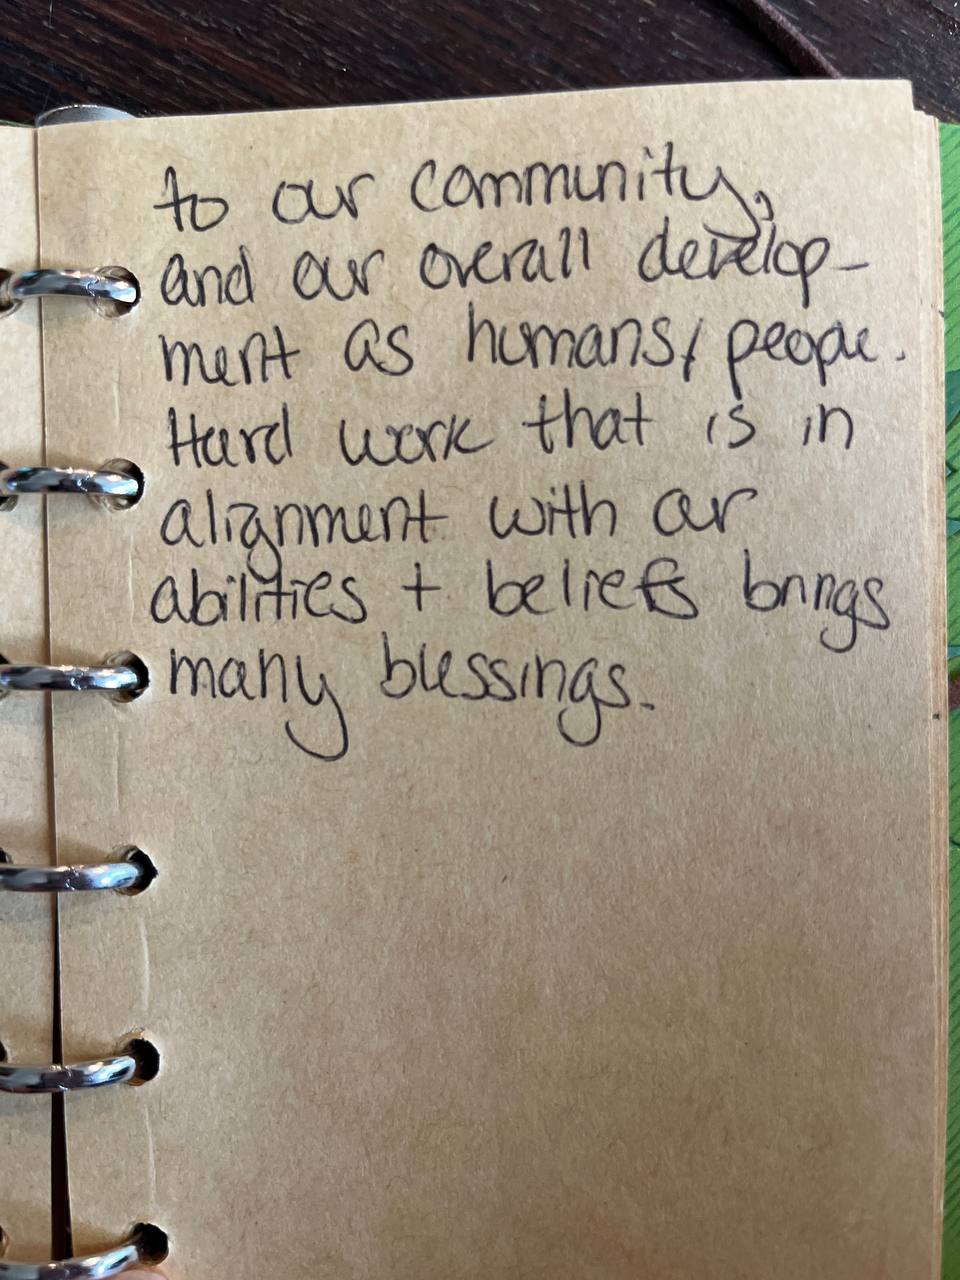 to our community,
and our overall develop-
ment as humans/people.
Hard work that is in
alignment with our
abilities + beliefs brings
many blessings.